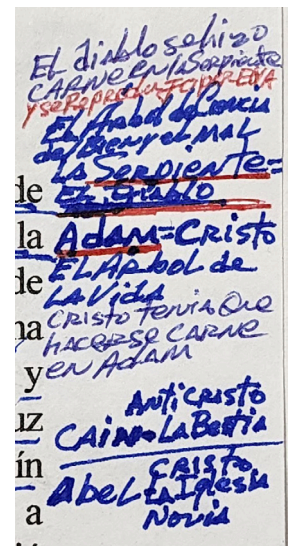 El diablo se hizo
CARNE EN la Serpiente
y se Reprodujo por EVA
El Arbol de Ciencia
del Bien y el MAL
LA SERPIENTE=
de EL Diablo
la Adam=CRisto
EL ARbol de
de LA Vida
CRisto tenia Que
na HACERSE CARNE
y EN ADAM
AntiCRisto
uz CAiN LA Bestia
ín CRisto
Abel LA Iglesia
a Novia